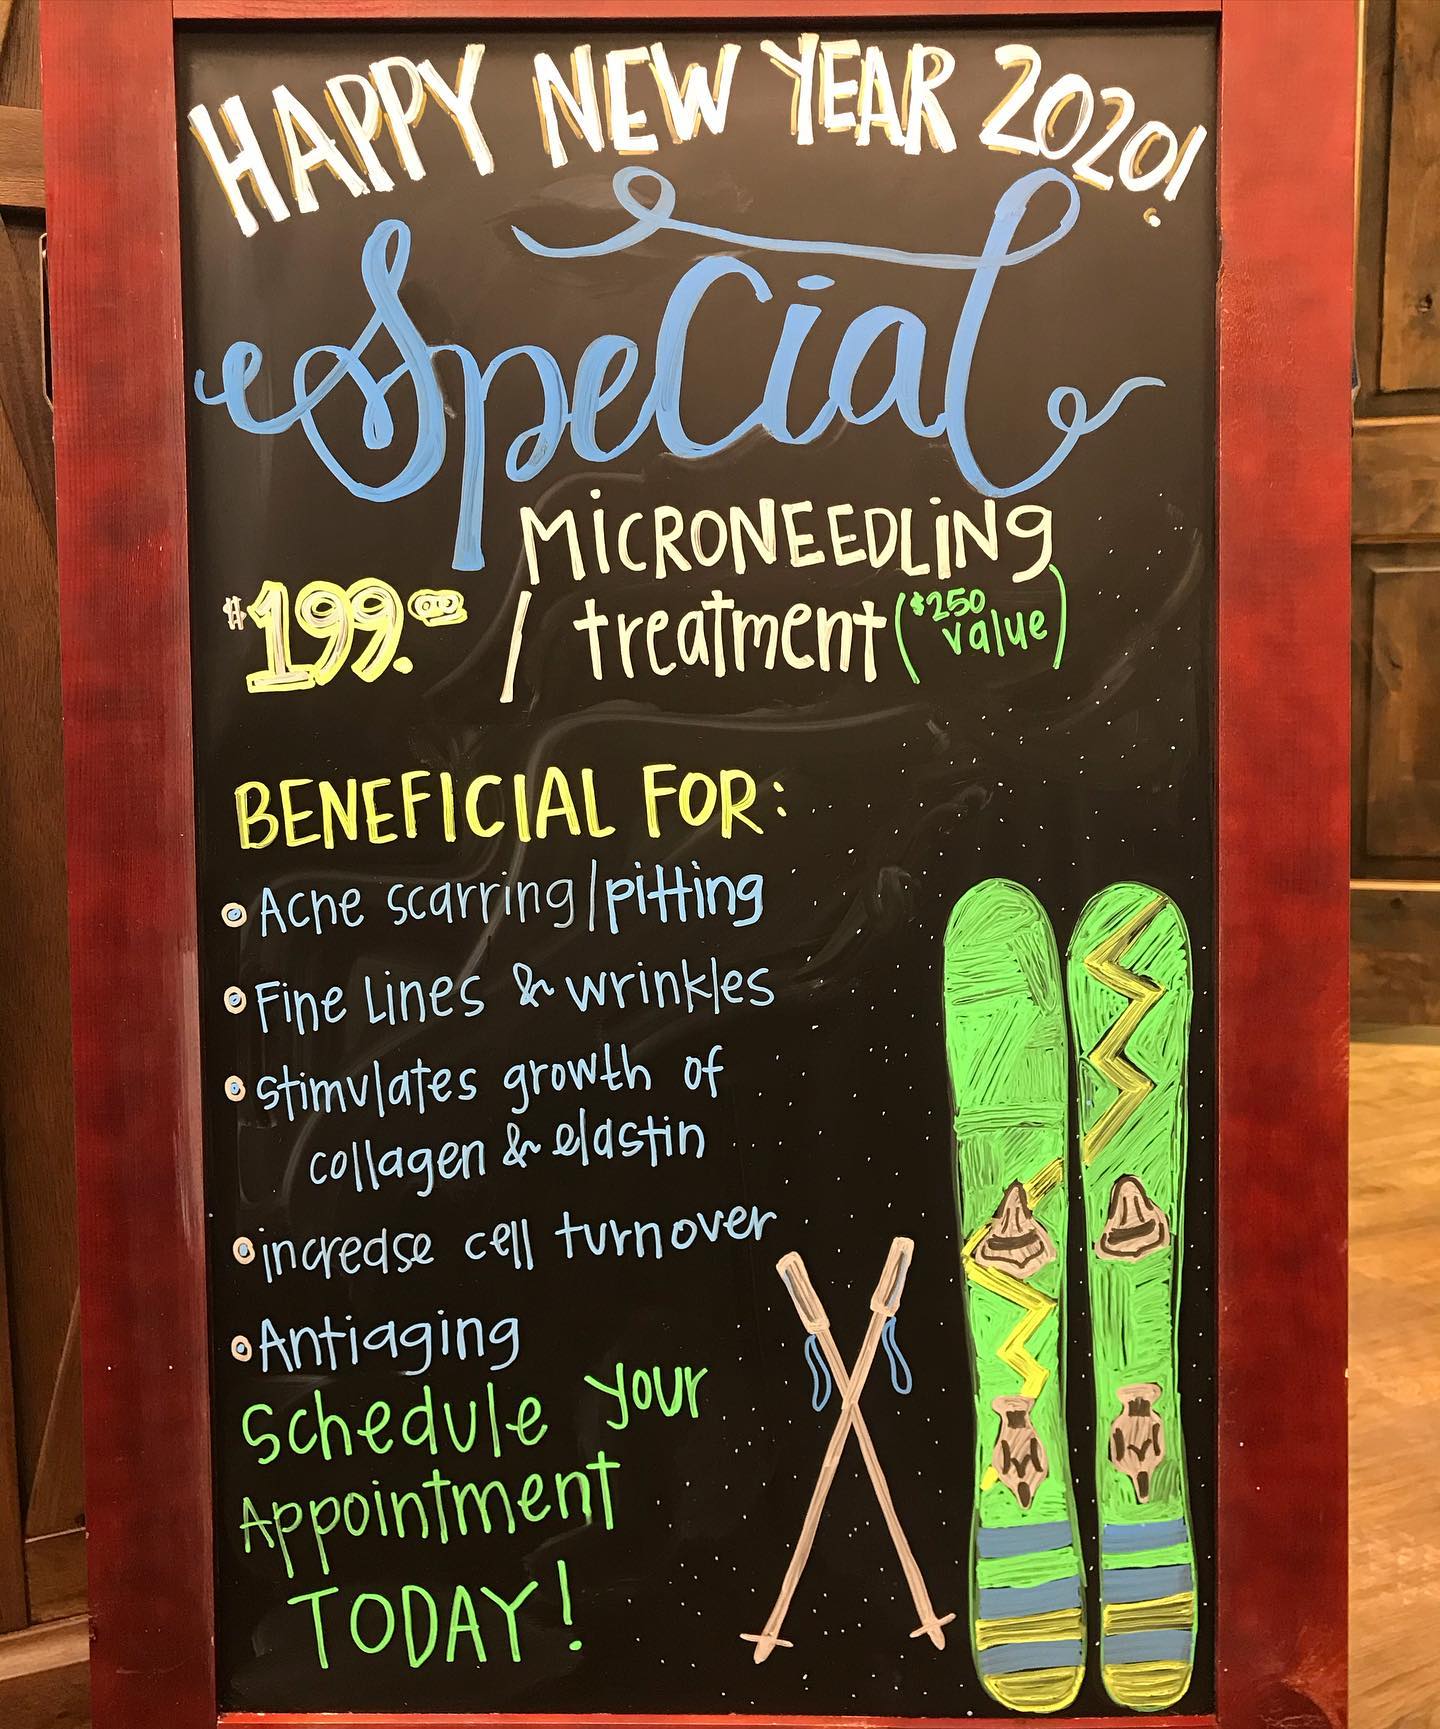 HAPPY NEW YEAR 2020!
Special
MiCRONEEDLiNg
$199.00 / treatment ($250 value)
BENEFICIAL FOR:
Acne scarring/pitting
Fine Lines & wrinkles
stimulates growth of
collagen & elastin
increase cell turnover
Antiaging
Schedule your
Appointment
TODAY!